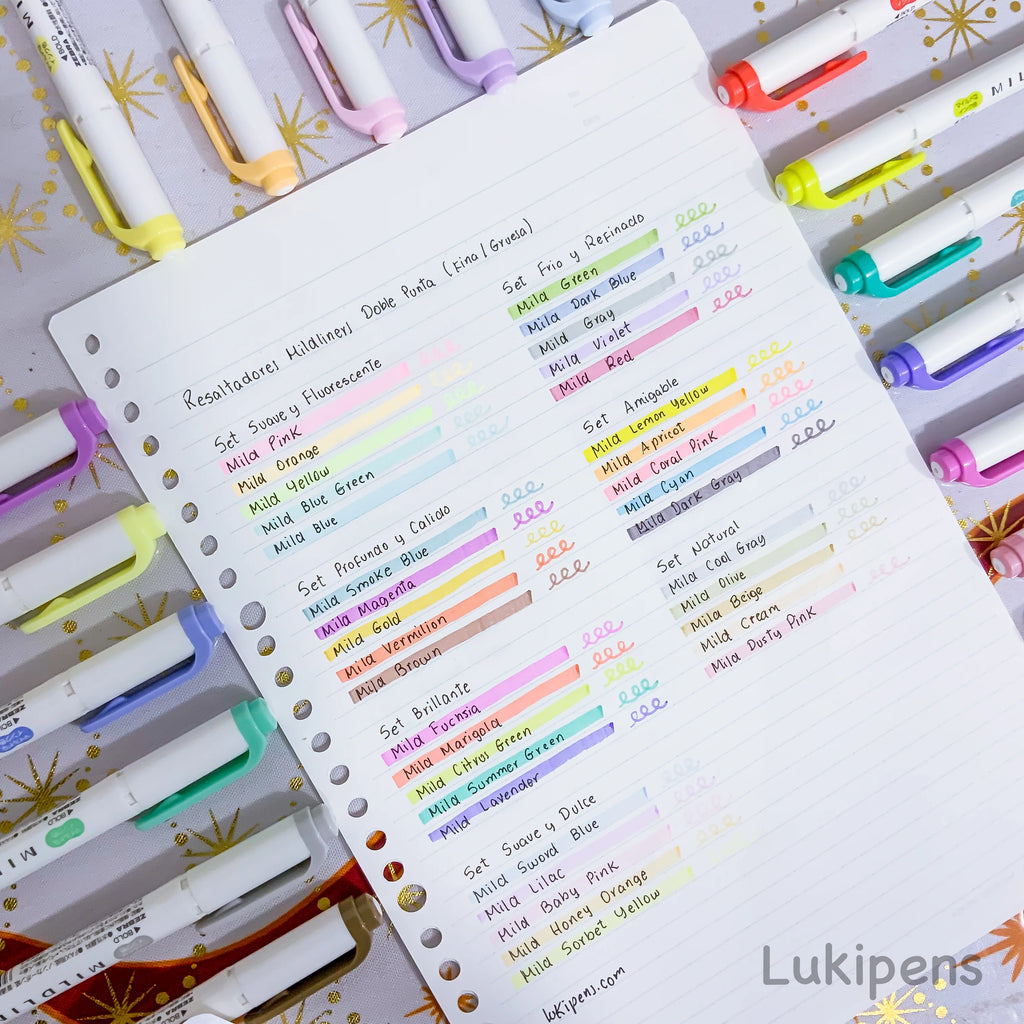 Resaltadores Mildliners Doble Punta (Fina/Gruesa)
Set Suave y Fluorescente
Mild Pink
Mild Orange
Mild Yellow
Mild Blue Green
Mild Blue
Set Profundo y Calido
Mild Smoke Blue
Mild Magenta
Mild Gold
Mild Vermilion
Mild Brown
Set Brillante
Mild Fuchsia
Mild Marigold
Mild Citrus Green
Mild Summer Green
Mild Lavender
Set Suave y Dulce
Mild Sword Blue
Mild Lilac
Mild Baby Pink
Mild Honey Orange
Mild Sorbet Yellow
lukipens.com
Set Frio y Refinado
Mild Green
Mild Dark Blue
Mild Gray
Mild Violet
Mild Red
Set Amigable
Mild Lemon Yellow
Mild Apricot
Mild Coral Pink
Mild Cyan
Mild Dark Gray
Set Natural
Mild Cool Gray
Mild Olive
Mild Beige
Mild Cream
Mild Dusty Pink
Lukipens
ZEBRA
BOLD
ZEBRA
BOLD